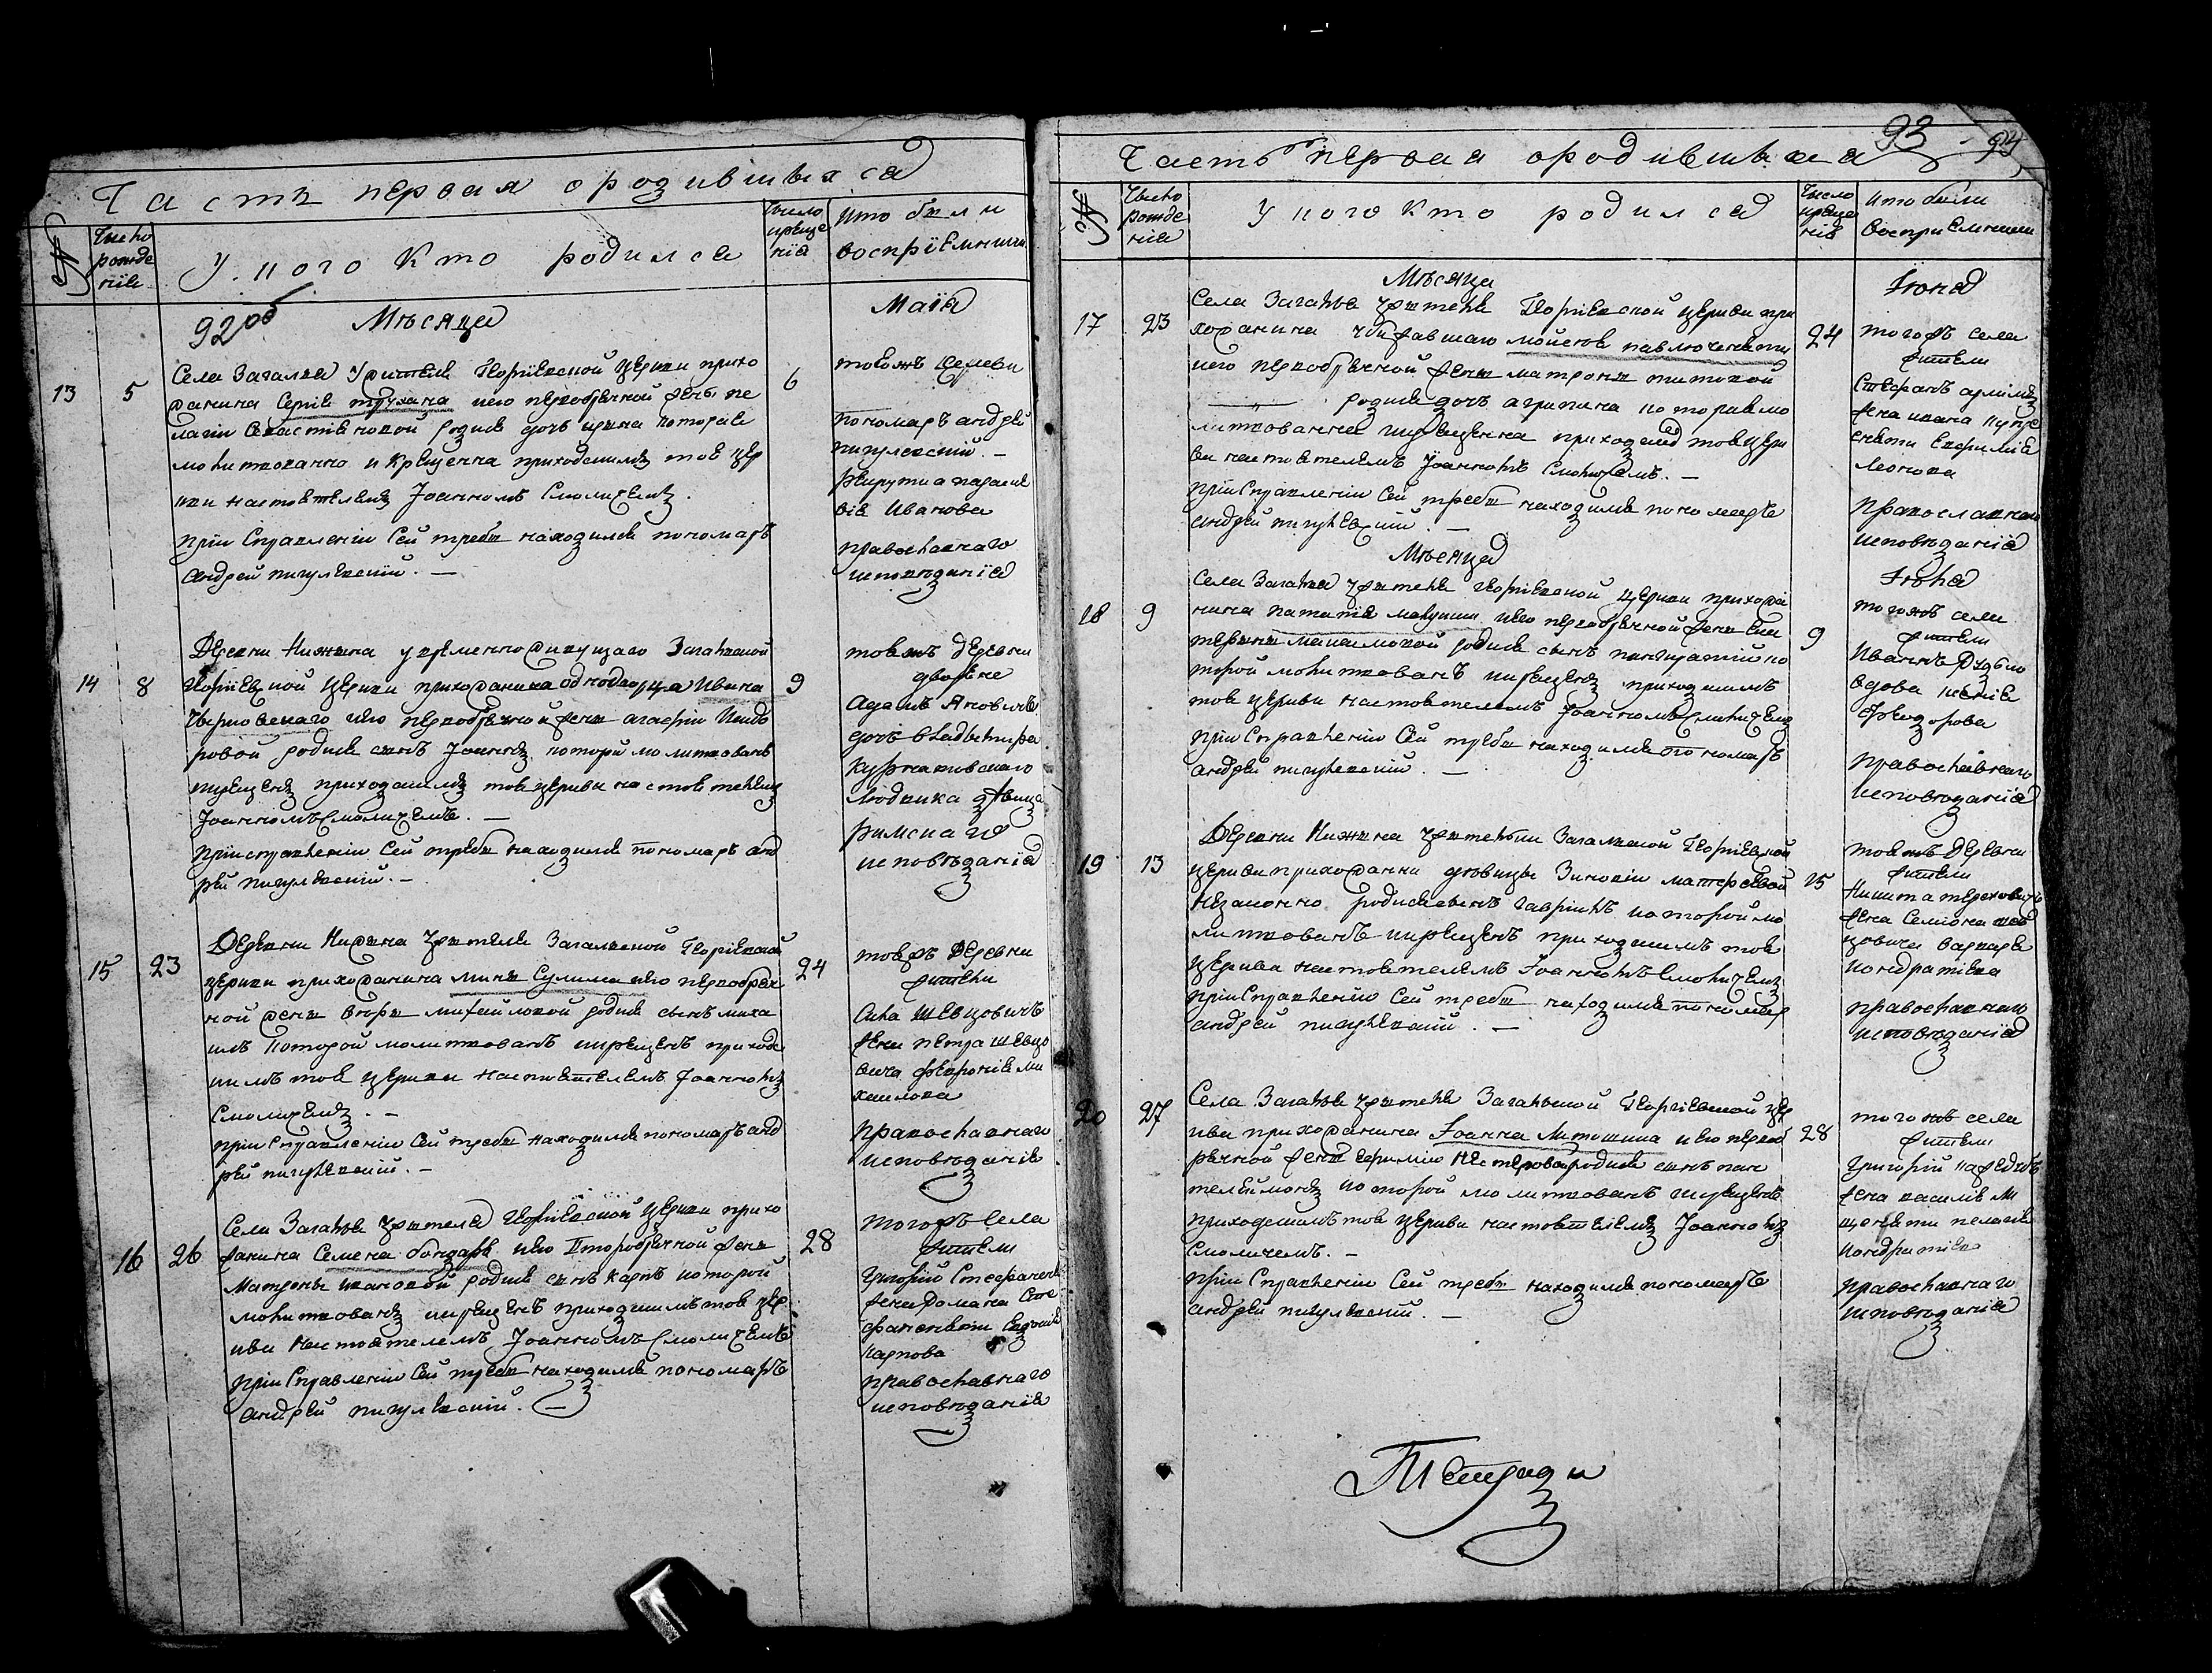 Часть первая о родившихся
№
Число рождения
У кого кто родился
Число крещения
Кто были восприемники
92об
Месяца
Маiя
13
5
Села Загалья жителя Георгиевской церкви прихо
жанина Сергiя Трухана и его первобрачной жены Пе
лагiи Севастiяновой родися дочь Ирина которая
молитвованна и крещенна приходскимъ тоя цер
кви настоятелемъ Iоанномъ Смоличемъ.
При справленiи сей требы находился пономарь
Андрей Пигулевскiй. —
6
тояжъ церкви
пономарь Андрей
Пигулевскiй. —
Иванова
православнаго
исповѣданiя
14
8
Деревни Нижина временно живущаго Загальской
Георгiевской церкви прихожанина однодворца Ивана
Черновскаго и его первобрачной жены Агафiи Исидо
ровой родися сынъ Iоаннъ который молитвованъ
и крещенъ приходскимъ тоя церкви настоятелемъ
Iоанномъ Смоличемъ. —
При справленiи сей требы находился пономарь Анд
рей Пигулевскiй. —
9
тояжъ деревни
дворяне
Адамъ Яновичъ
дочь Владимира
Курнатовскаго
Людвика дѣвица
римскаго
исповѣданiя
15
23
Деревни Нижина жителя Загальской Георгiевской
церкви прихожанина Мины Сулима и его первобрач
ной жены миxайловой родися сынъ Миха
илъ который молитвованъ и крещенъ приходс
кимъ тоя церкви настоятелемъ Iоанномъ
Смоличемъ. —
При справленiи сей требы находился пономарь Анд
рей Пигулевскiй. —
24
тояжъ деревни
жители
Сила Шевцовичъ
жена Петра Шевцо
вича Феυронiя Ми
хаилова
православнаго
исповѣданiя
16
26
Села Загалья жителя Георгiевской церкви прихо
жанина Семена Бондаря и его второбрачной жены
Матроны Ивановой родися сынъ Карпъ который
молитвованъ и крещенъ приходскимъ тоя цер
кви настоятелемъ Iоанномъ Смоличемъ
При справленiи сей требы находился пономарь
Андрей Пигулевскiй. —
28
тогожъ села
жители
Григорiй Стефаненк
жена Романа Сте
фаненкати Евдокiя
Карпова
православнаго
исповѣданiя
93
Часть первая о родившихся
№
Число рождения
У кого кто родился
Число крещения
Кто были восприемники
Месяца
Iюня
17
23
Села Загалья жителя Георгiевской церкви при
хожанина Моисея Павлюченкати
и его первобрачной жены Матроны Титовой
родися дочь Агрипина которая мо
литвованна и крещенна приходскимъ тоя церк
ви настоятелемъ Iоанномъ Смоличемъ. —
При справленiи сей требы находился пономарь
Андрей Пигулевскiй. —
24
тогожъ села
жители
Стефанъ
жена Ивана
Евфимiя
Леонова
православнаго
исповѣданiя
Месяца
Iюля
18
9
Села Загалья жителя Георгiевской церкви прихожа
нина Игнатiя и его первобрачной жены Ека
терины родися сынъ ко
торой молитвованъ и крещенъ приходскимъ
тоя церкви настоятелемъ Iоанномъ Смоличемъ
При справленiи сей требы находился пономарь
Андрей Пигулевскiй. —
9
тогожъ села
жители
Иванъ
вдова
Феодорова
православнаго
исповѣданiя
19
13
Деревни Нижина жителки Загальской Георгiевской
церкви прихожанки дѣвицы Зиновiи
незаконно родися сынъ Гаврiилъ которой мо
литвованъ и крещенъ приходскимъ тоя
церкви настоятелемъ Iоанномъ Смоличемъ
При справленiи сей требы находился пономарь
Андрей Пигулевскiй. —
15
тояжъ деревни
жители
Никита Тереховичъ
жена Семiона Шев
цовича Варвара
Кондратiева
православнаго
исповѣданiя
20
27
Села Загалья жителя Загальской Георгiевской цер
кви прихожанина Iоанна Митошина и его перво
брачной жены Нестеровой родися сынъ Пан
телеимонъ которой молитвованъ и крещенъ
приходскимъ тоя церкви настоятелемъ Iоанномъ
Смоличемъ. —
При справленiи сей требы находился пономарь
Андрей Пигулевскiй. —
28
тогожъ села
жители
Григорiй
жена Василiя Ми
щенкати Пелагiя
Кондратiева
православнаго
исповѣданiя